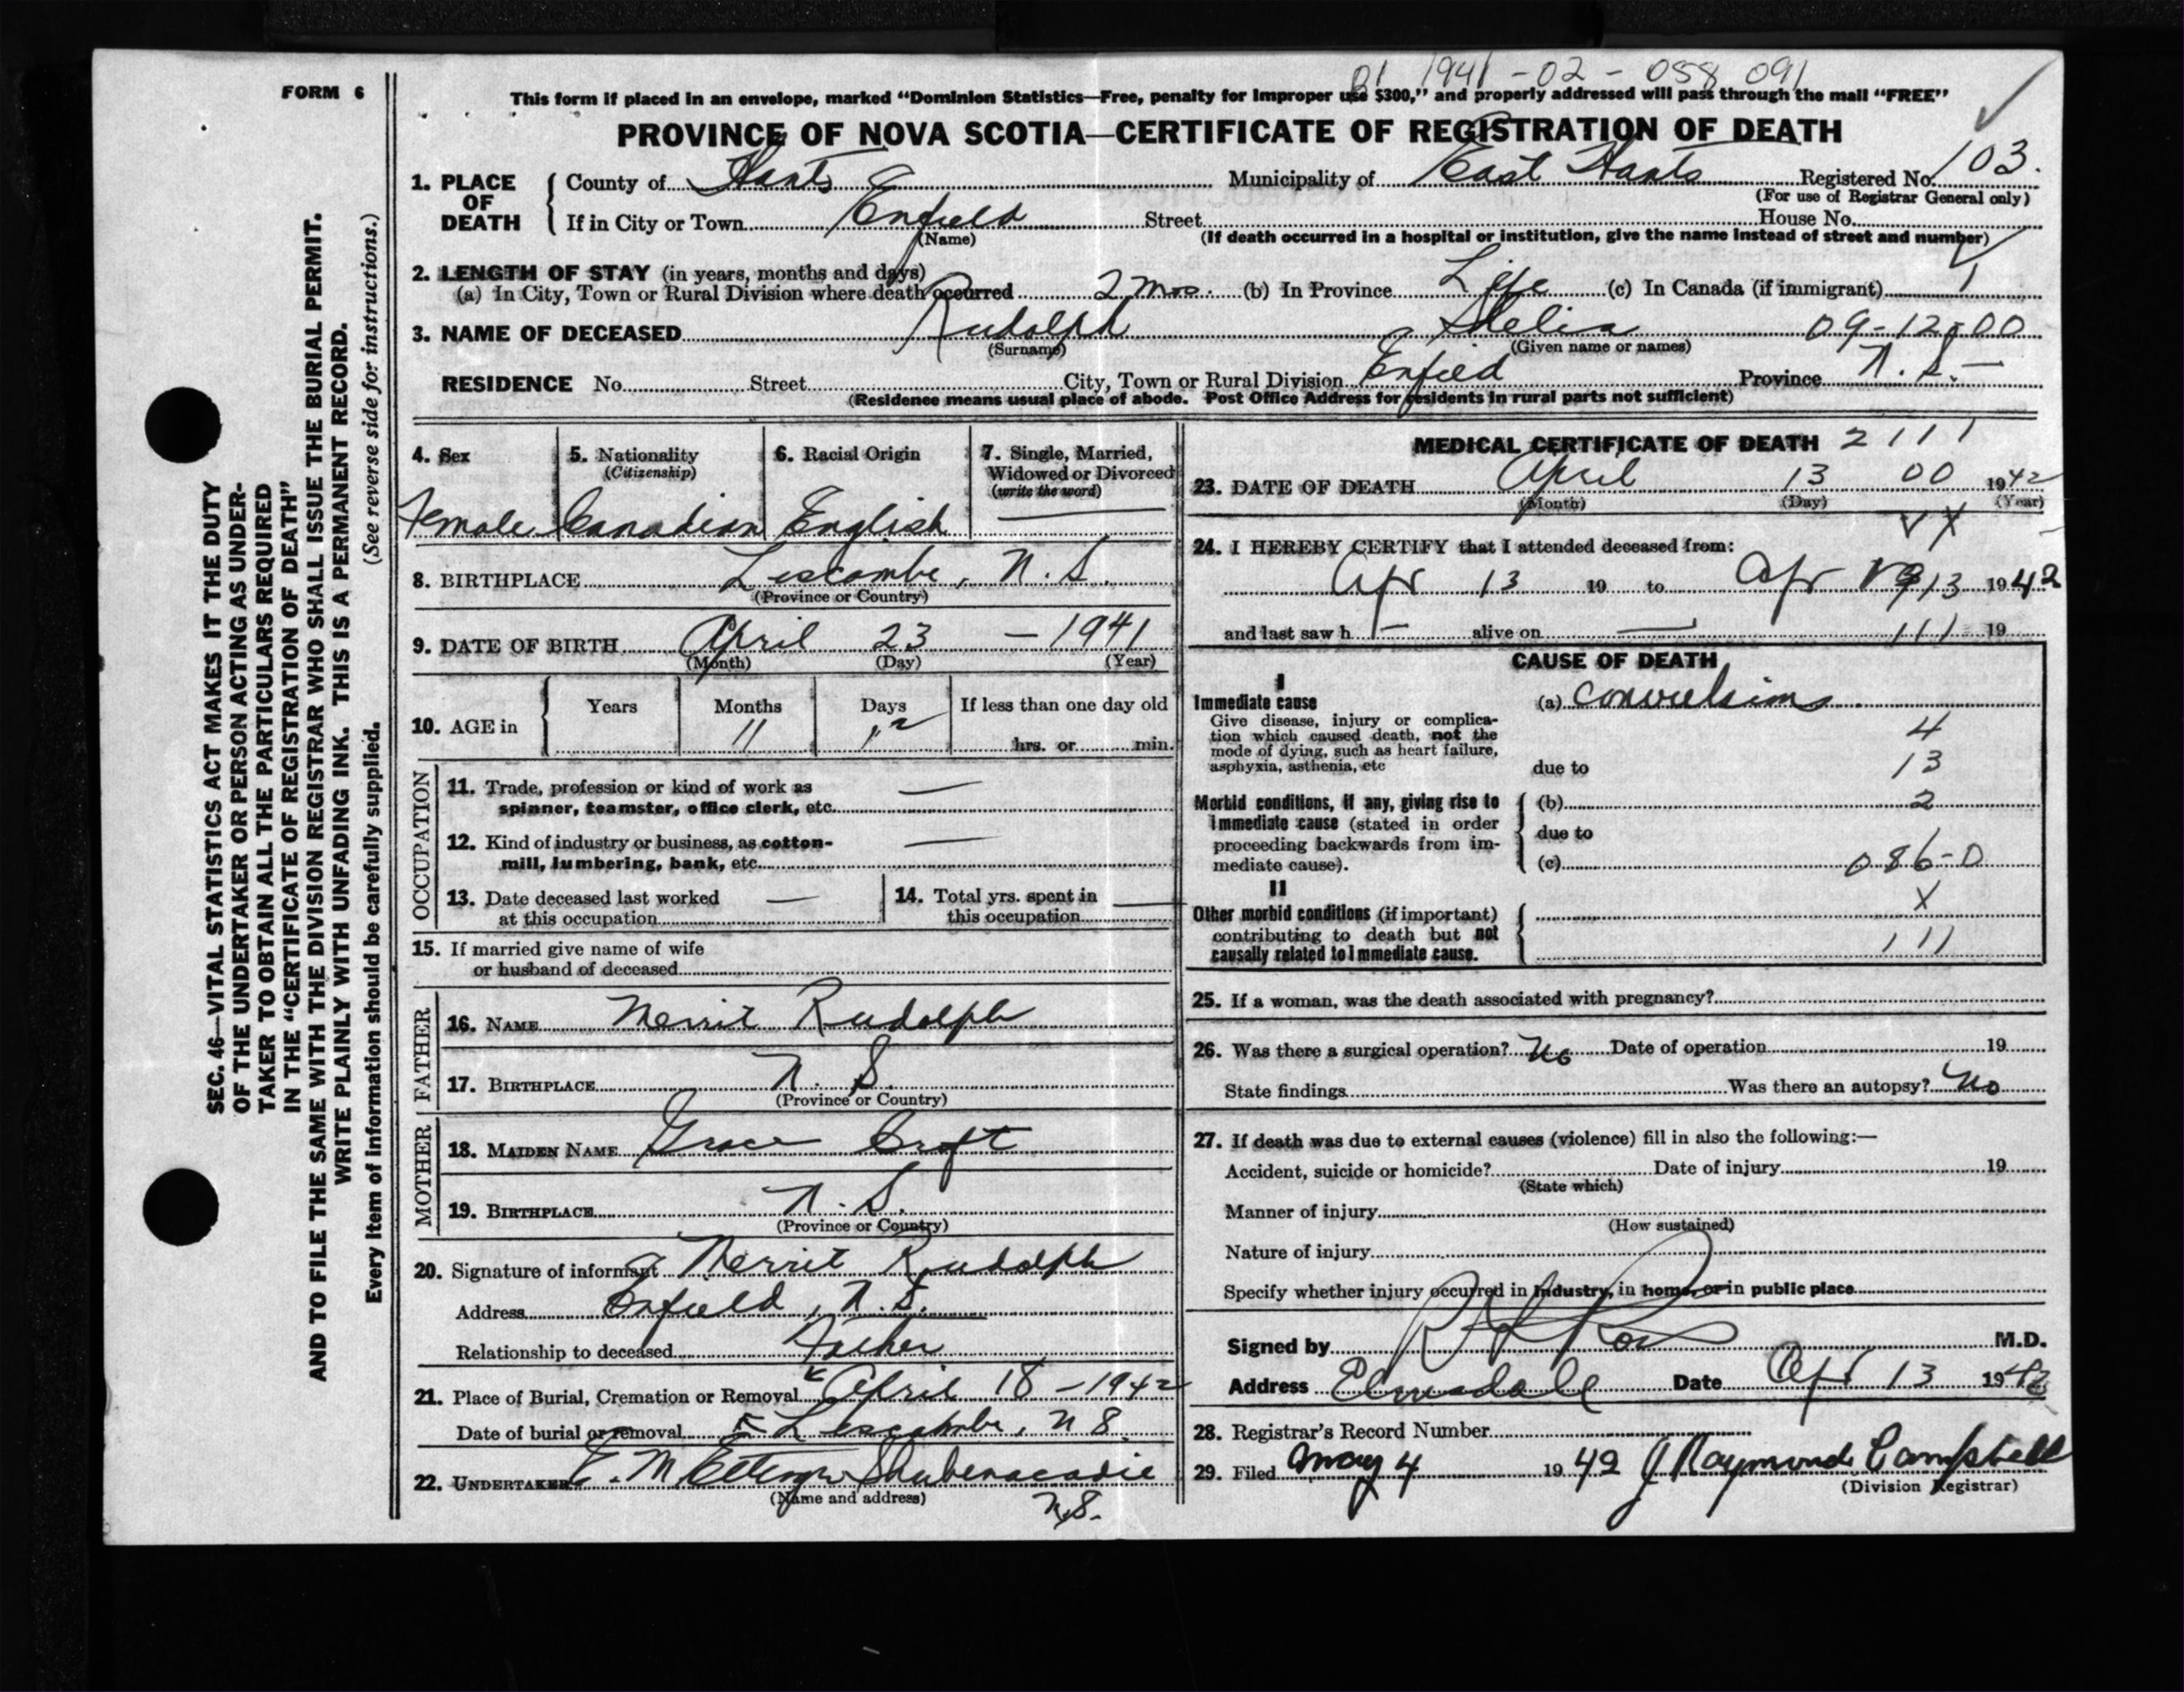 01 1941 - 02 - 058 091
FORM 6
This form if placed in an envelope, marked “Dominion Statistics—Free, penalty for improper use $300,” and properly addressed will pass through the mail “FREE”
PROVINCE OF NOVA SCOTIA—CERTIFICATE OF REGISTRATION OF DEATH
1. PLACE OF DEATH County of Hants Municipality of East Hants Registered No. 103.
(For use of Registrar General only)
If in City or Town Enfield Street House No.
(Name) (If death occurred in a hospital or institution, give the name instead of street and number)
2. LENGTH OF STAY (in years, months and days)
(a) In City, Town or Rural Division where death occurred 2 Mos. (b) In Province Life (c) In Canada (if immigrant)
3. NAME OF DECEASED Rudolph Shelia 09-12-00
(Surname) (Given name or names)
RESIDENCE No. Street City, Town or Rural Division Enfied Province N. S. —
(Residence means usual place of abode. Post Office Address for residents in rural parts not sufficient)
4. Sex 5. Nationality (Citizenship) 6. Racial Origin 7. Single, Married, Widowed or Divorced (write the word)
Female Canadian English —
8. BIRTHPLACE Liscombe, N. S.
(Province or Country)
9. DATE OF BIRTH April 23 — 1941
(Month) (Day) (Year)
10. AGE in Years Months Days If less than one day old
11 hrs. or min.
OCCUPATION
11. Trade, profession or kind of work as —
spinner, teamster, office clerk, etc.
12. Kind of industry or business, as cotton- —
mill, lumbering, bank, etc.
13. Date deceased last worked — 14. Total yrs. spent in —
at this occupation this occupation
15. If married give name of wife
or husband of deceased
FATHER
16. NAME Merrit Rudolph
17. BIRTHPLACE N. S.
(Province or Country)
MOTHER
18. MAIDEN NAME Grace Croft
19. BIRTHPLACE N. S.
(Province or Country)
20. Signature of informant Merrit Rudolph
Address Enfield, N. S.
Relationship to deceased Father
21. Place of Burial, Cremation or Removal April 18 — 1942
Date of burial or removal Liscombe, N S.
22. UNDERTAKER E. M Ettinger Shubenacadie
(Name and address) N.S.
MEDICAL CERTIFICATE OF DEATH 2111
23. DATE OF DEATH April 13 00 1942
(Month) (Day) (Year)
24. I HEREBY CERTIFY that I attended deceased from:
Apr 13 19 to Apr 13 1942
and last saw h — alive on — 111 19
CAUSE OF DEATH
I
Immediate cause (a) convulsions
Give disease, injury or complica-
tion which caused death, not the 4
mode of dying, such as heart failure,
asphyxia, asthenia, etc due to 13
Morbid conditions, if any, giving rise to (b) 2
immediate cause (stated in order due to
proceeding backwards from im-
mediate cause). (c) 086-0
II X
Other morbid conditions (if important)
contributing to death but not
causally related to immediate cause. 111
25. If a woman, was the death associated with pregnancy?
26. Was there a surgical operation? No Date of operation 19
State findings Was there an autopsy? No
27. If death was due to external causes (violence) fill in also the following:—
Accident, suicide or homicide? Date of injury 19
(State which)
Manner of injury
(How sustained)
Nature of injury
Specify whether injury occurred in industry, in home, or in public place
Signed by M.D.
Address Elmsdale Date Apr 13 1942
28. Registrar's Record Number
29. Filed May 4 1942 J Raymond Campbell
(Division Registrar)
SEC. 46—VITAL STATISTICS ACT MAKES IT THE DUTY
OF THE UNDERTAKER OR PERSON ACTING AS UNDER-
TAKER TO OBTAIN ALL THE PARTICULARS REQUIRED
IN THE “CERTIFICATE OF REGISTRATION OF DEATH”
AND TO FILE THE SAME WITH THE DIVISION REGISTRAR WHO SHALL ISSUE THE BURIAL PERMIT.
WRITE PLAINLY WITH UNFADING INK. THIS IS A PERMANENT RECORD.
Every item of information should be carefully supplied. (See reverse side for instructions.)